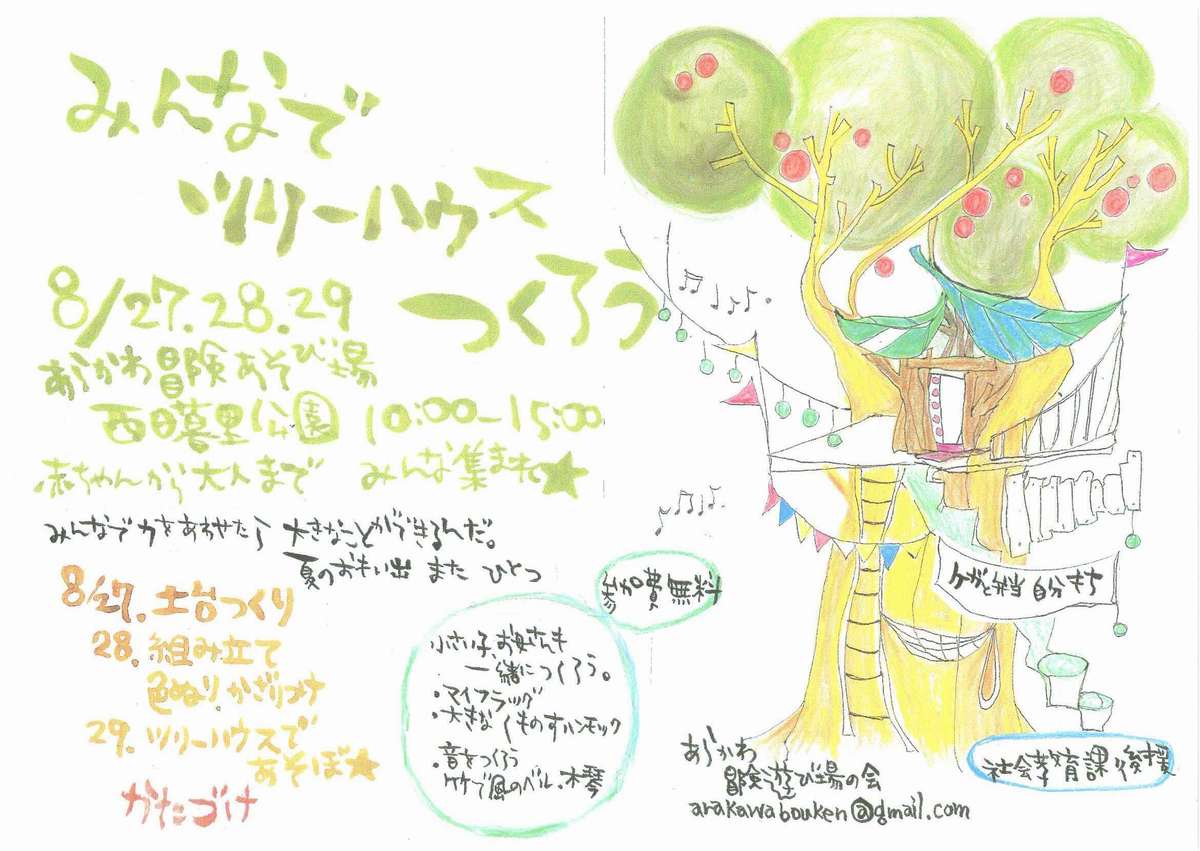 みんなで
ツリーハウス
つくろう
8/27.28.29
あらかわ冒険あそび場
西日暮里公園 10:00-15:00
赤ちゃんから大人まで みんな集まれ★
みんなで力をあわせたら 大きなことができるんだ。
夏のおもい出 また ひとつ
8/27. 土台つくり
28. 組み立て
色ぬり かざりづけ
29. ツリーハウスで
あそぼ★
かたづけ
参加費無料
小さい子、お母さんも
一緒につくろう。
・マイフラッグ
・大きなくものすハンモック
・音をつくろう
竹で風のベル、木琴
ケガと弁当 自分もち
あらかわ
冒険遊び場の会
arakawabouken@gmail.com
社会教育課後援